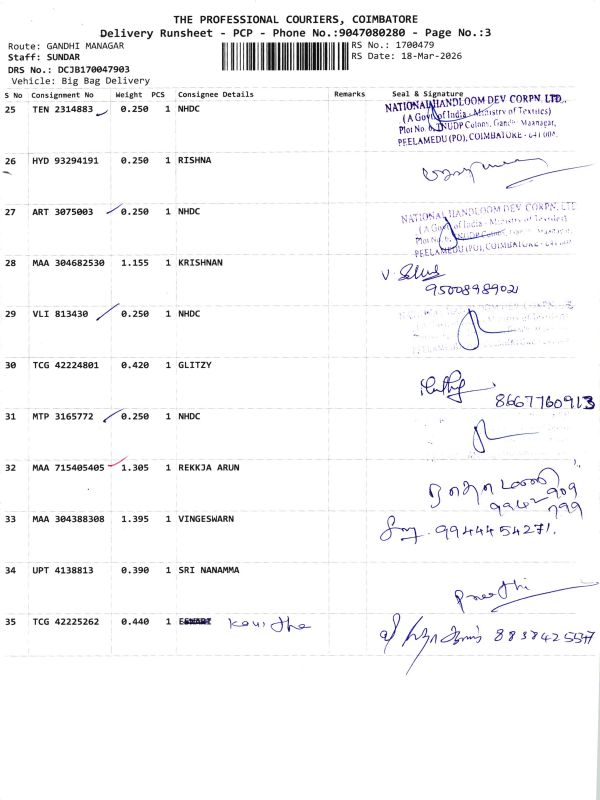 THE PROFESSIONAL COURIERS, COIMBATORE
Delivery Runsheet - PCP - Phone No.:9047080280 - Page No.:3
Route: GANDHI MANAGAR
RS No.: 1700479
Staff: SUNDAR
RS Date: 18-Mar-2026
DRS No.: DCJB170047903
Vehicle: Big Bag Delivery
S No Consignment No Weight PCS Consignee Details Remarks Seal & Signature
25 TEN 2314883 0.250 1 NHDC
NATIONAL HANDLOOM DEV CORPN. LTD.,
(A Govt. of India - Ministry of Textiles)
Plot No. 6, TNUDP Colony, Gandhi Maanagar,
PEELAMEDU (PO), COIMBATORE - 641 004.
26 HYD 93294191 0.250 1 RISHNA
27 ART 3075003 0.250 1 NHDC
NATIONAL HANDLOOM DEV CORPN. LTD
(A Govt. of India - Ministry of Textiles)
PEELAMEDU (PO), COIMBATORE
28 MAA 304682530 1.155 1 KRISHNAN
9500898902
29 VLI 813430 0.250 1 NHDC
30 TCG 42224801 0.420 1 GLITZY
8667760913
31 MTP 3165772 0.250 1 NHDC
32 MAA 715405405 1.305 1 REKKJA ARUN
909
799
33 MAA 304388308 1.395 1 VINGESWARN
9944454271.
34 UPT 4138813 0.390 1 SRI NANAMMA
Preethi
35 TCG 42225262 0.440 1 Kavitha
8838425547